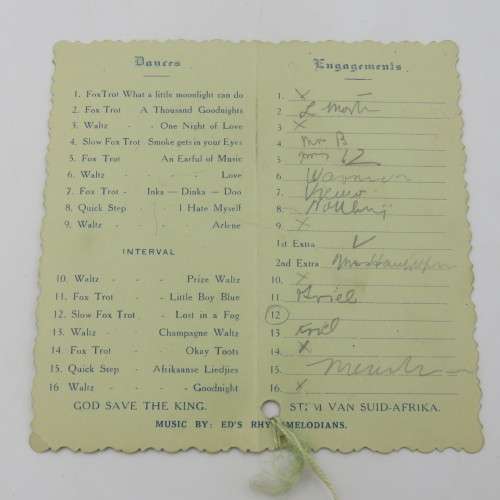 Dances
1. Fox Trot What a little moonlight can do
2. Fox Trot A Thousand Goodnights
3. Waltz - - One Night of Love
4. Slow Fox Trot Smoke gets in your Eyes
5. Fox Trot An Earful of Music
6. Waltz - - - - Love
7. Fox Trot - Inka — Dinka — Doo
8. Quick Step I Hate Myself
9. Waltz - - - Arlene
INTERVAL
10. Waltz - - Prize Waltz
11. Fox Trot - - Little Boy Blue
12. Slow Fox Trot - Lost in a Fog
13. Waltz - Champagne Waltz
14. Fox Trot - - Okay Toots
15. Quick Step - Afrikaanse Liedjies
16 Waltz - - - Goodnight
GOD SAVE THE KING.
Engagements
1. X
2. L
3. X
4. Mrs B
5.
6.
7.
8.
9. X
1st Extra
2nd Extra
10. X
11. Ariel
12
13. Ariel
14. X
15.
16. X
VAN SUID-AFRIKA.
MUSIC BY: ED'S MELODIANS.